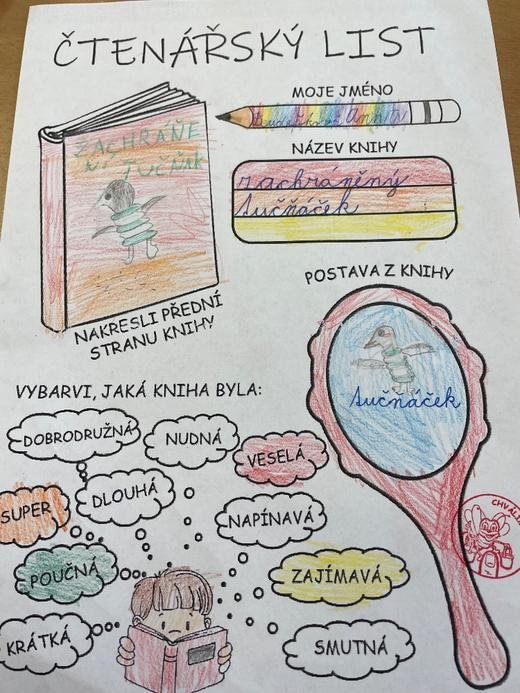 ČTENÁŘSKÝ LIST
MOJE JMÉNO
NÁZEV KNIHY
zachráněný
tučňáček
ZACHRAŇE
NÝ TUČŇÁK
NAKRESLI PŘEDNÍ
STRANU KNIHY
POSTAVA Z KNIHY
tučňáček
VYBARVI, JAKÁ KNIHA BYLA:
DOBRODRUŽNÁ
NUDNÁ
VESELÁ
SUPER
DLOUHÁ
NAPÍNAVÁ
POUČNÁ
ZAJÍMAVÁ
KRÁTKÁ
SMUTNÁ